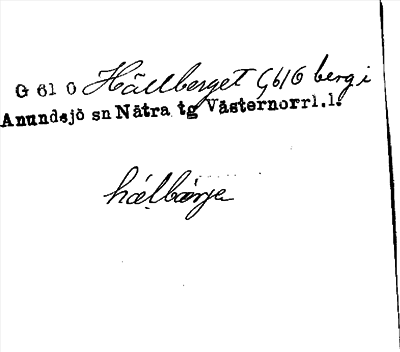 G 61 O Hällberget G61O berg i
Anundsjö sn Nätra tg Västernorrl.l.
hälbärje